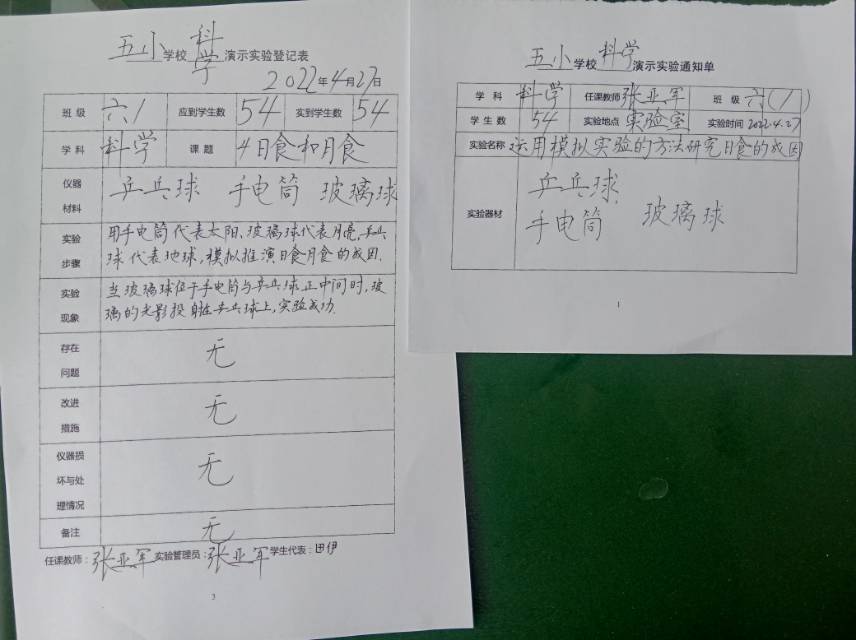 五小学校科学演示实验登记表
2022年4月27日
班级 六1 应到学生数 54 实到学生数 54
学科 科学 课题 4日食和月食
仪器材料 乒乓球 手电筒 玻璃球
实验步骤 用手电筒代表太阳、玻璃球代表月亮,乒乓
球代表地球,模拟推演日食月食的成因.
实验现象 当玻璃球位于手电筒与乒乓球正中间时,玻
璃的光影投射在乒乓球上,实验成功.
存在问题 无
改进措施 无
仪器损坏与处理情况 无
备注 无
任课教师:张亚军 实验管理员:张亚军 学生代表:田伊
3
五小学校科学演示实验通知单
学科 科学 任课教师 张亚军 班级 六(1)
学生数 54 实验地点 实验室 实验时间 2022.4.27
实验名称 运用模拟实验的方法研究日食的成因
实验器材 乒乓球
手电筒 玻璃球
1